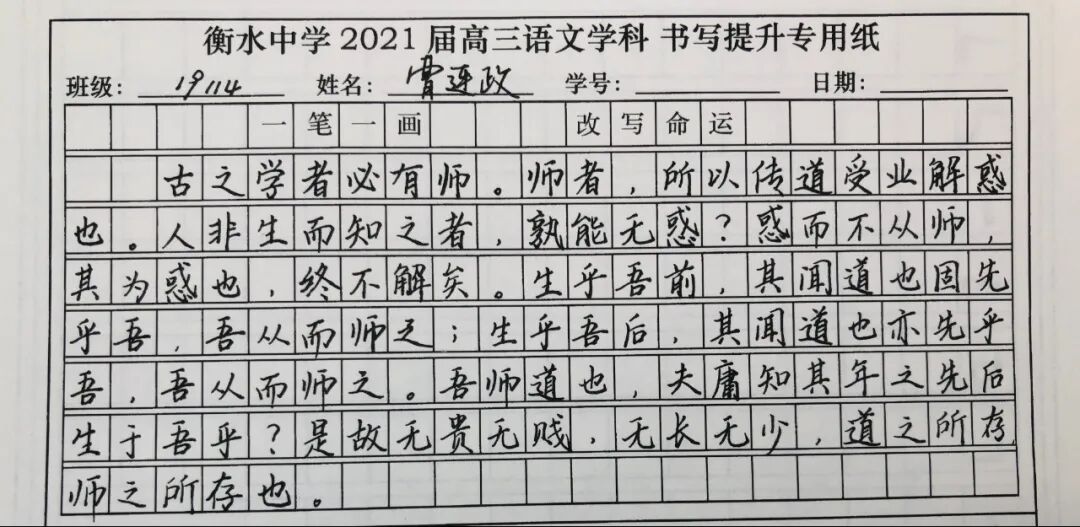 衡水中学 2021 届高三语文学科 书写提升专用纸
班级: 19114 姓名: 曹连政 学号: 日期:
一笔一画 改写命运
古之学者必有师。师者，所以传道受业解惑
也。人非生而知之者，孰能无惑？惑而不从师，
其为惑也，终不解矣。生乎吾前，其闻道也固先
乎吾，吾从而师之；生乎吾后，其闻道也亦先乎
吾，吾从而师之。吾师道也，夫庸知其年之先后
生于吾乎？是故无贵无贱，无长无少，道之所存，
师之所存也。